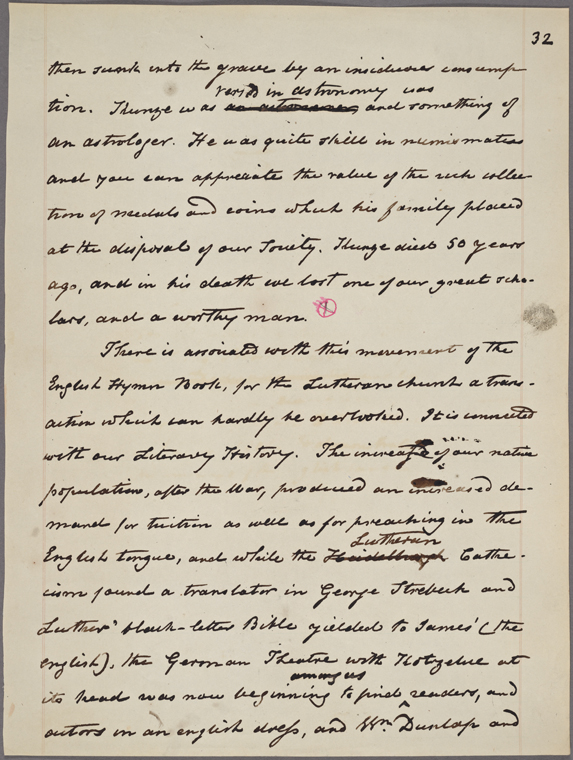 32
then sunk into the grave by an insidious consump
versed in astronomy was
tion. Kunze was an astronomer, and something of
an astrologer. He was quite skilld in numismatics
and you can appreciate the value of the rich collec-
tion of medals and coins which his family placed
at the disposal of our Society. Kunze died 50 years
ago, and in his death we lost one of our great scho-
lars, and a worthy man.
There is associated with this movement of the
English Hymn Book, for the Lutheran church a trans-
action which can hardly be overlooked. It is connected
with our Literary History. The increase of our native
population, after the War, produced an increased de-
mand for tuition as well as for preaching in the
Lutheran
English tongue, and while the Heidelburgh Cathe-
cism found a translator in George Strebeck and
Luther's black-letter Bible yielded to James' (the
english), the German Theatre with Kotzebue at
among us
its head was now beginning to find readers, and
actors in an english dress, and Wm. Dunlap and